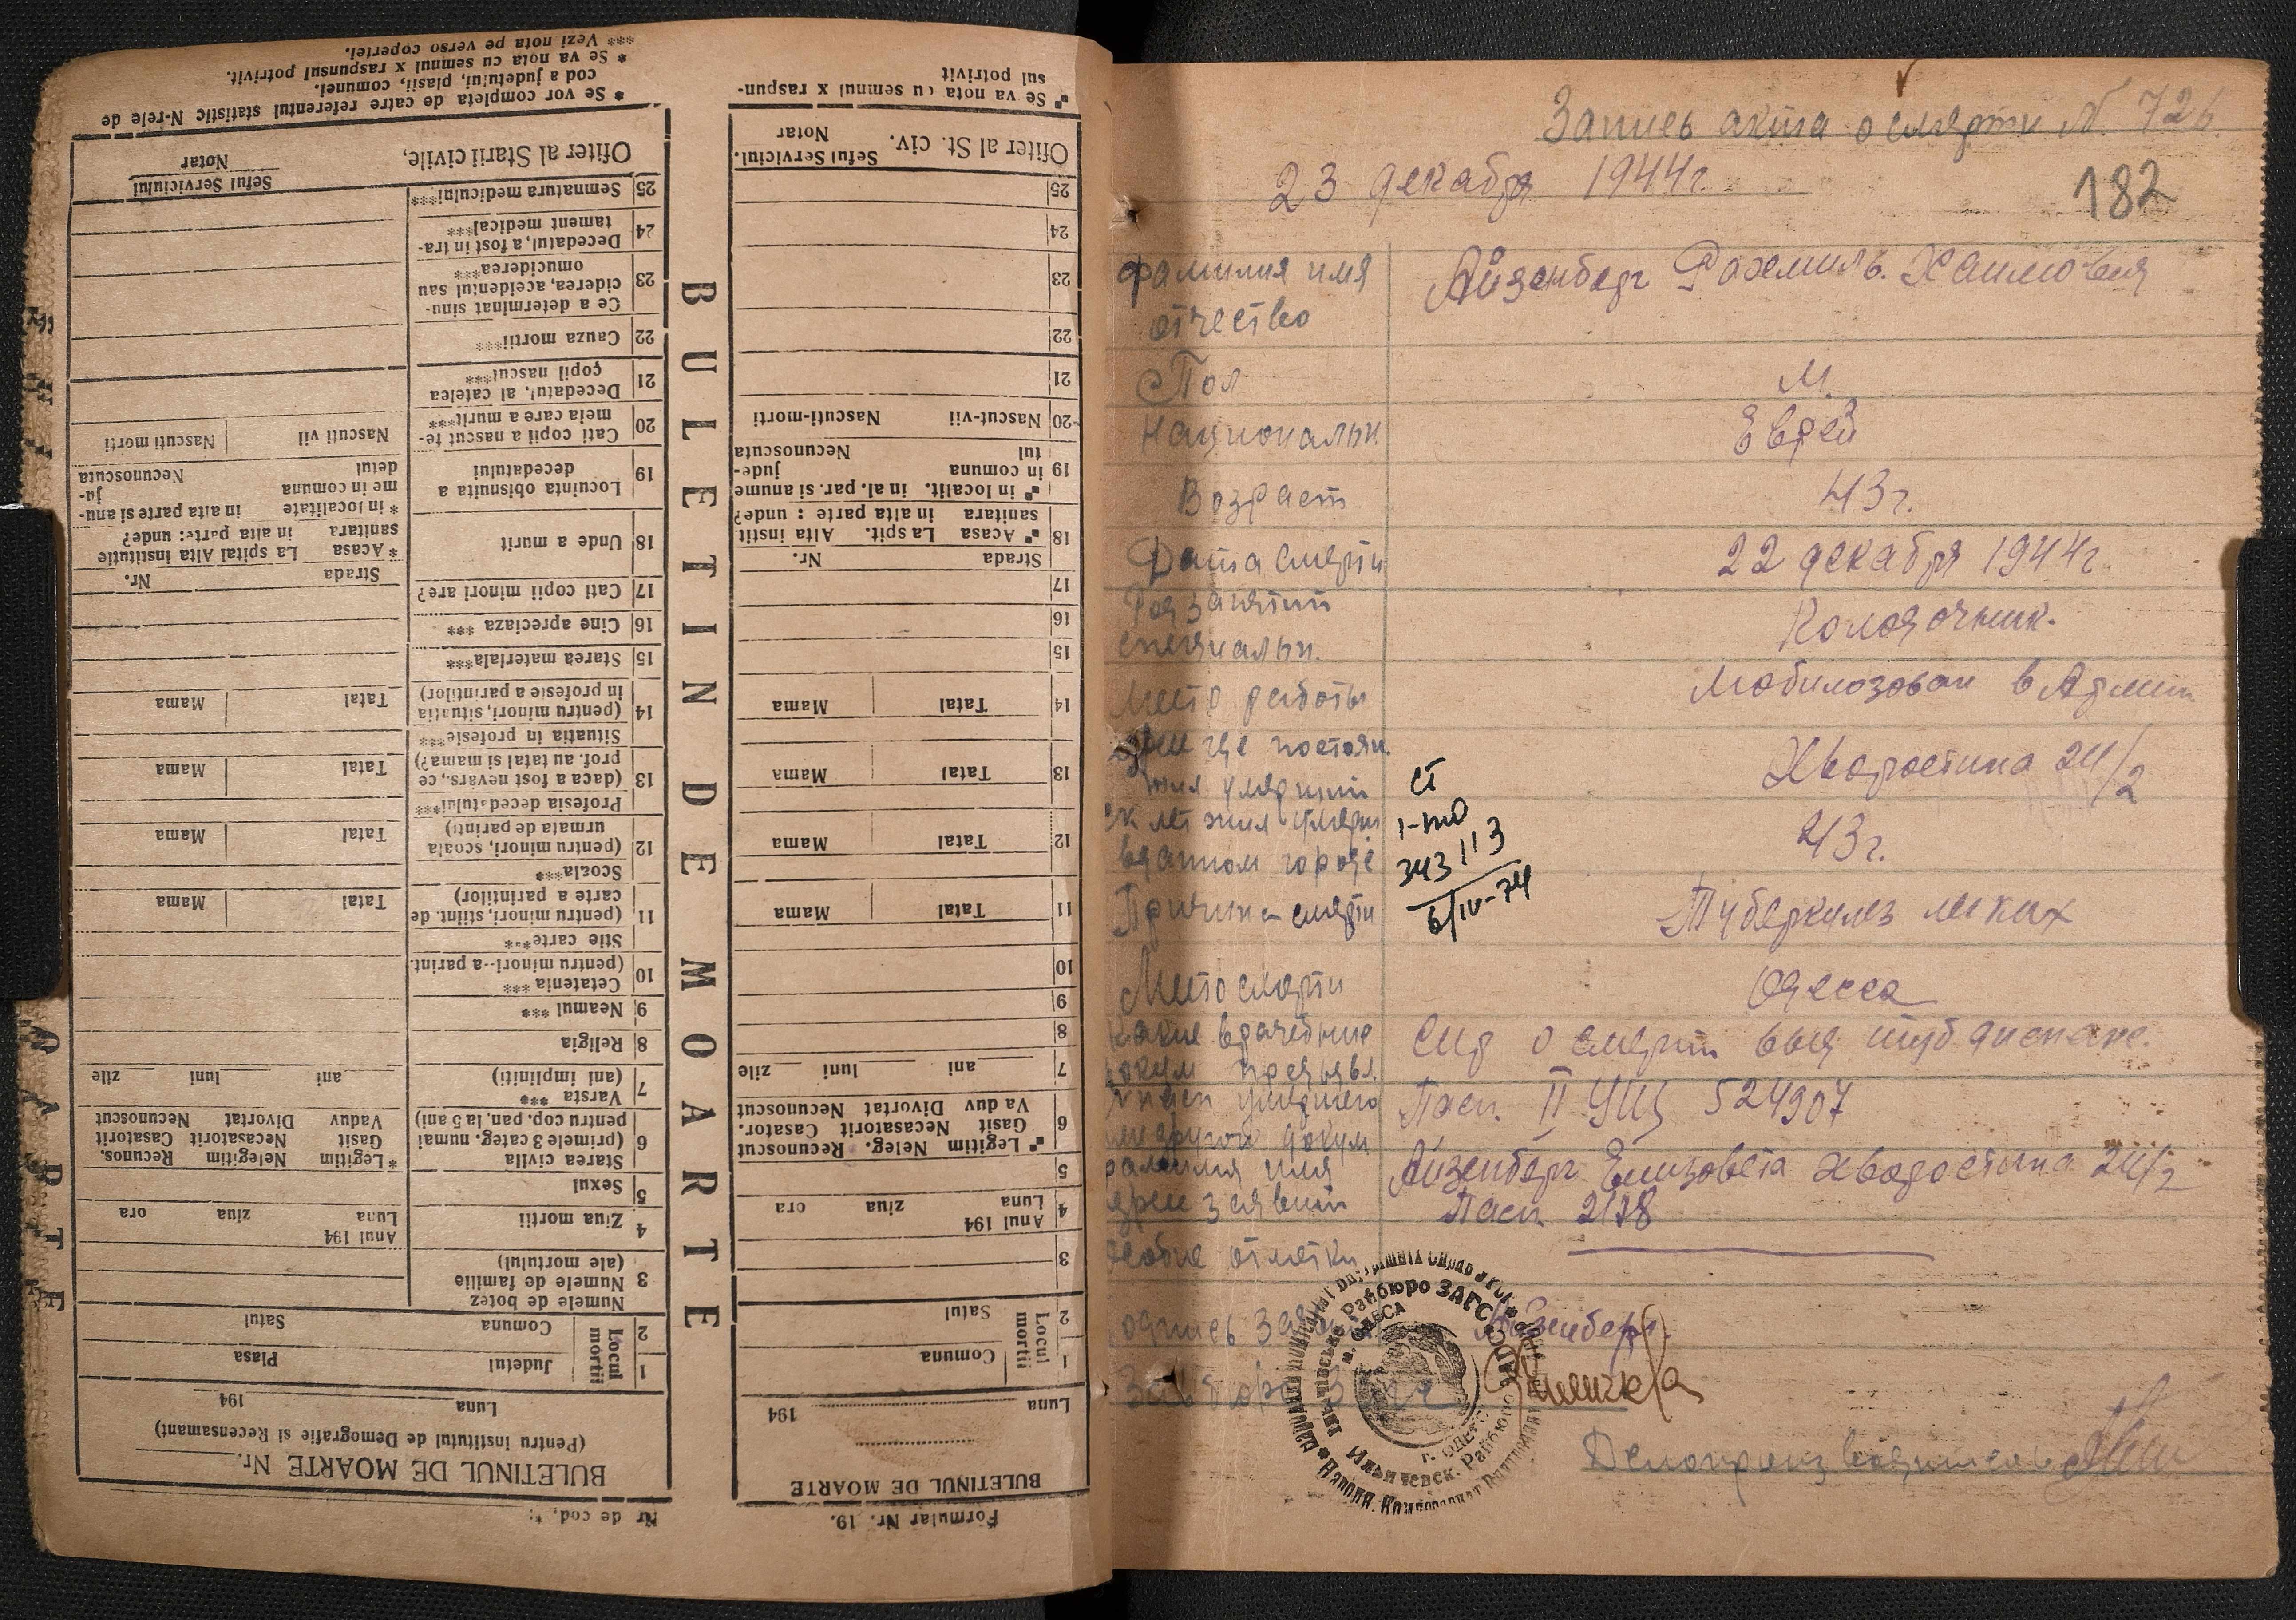 Запись акта о смерти N. 726.
23 декабря 1944г.
182
Фамилия имя
отчество
Айзенберг Рахмиль. Хаимовия
Пол
М.
Национальн
Еврей
Возраст
43г.
Дата смерти
22 декабря 1944г.
Род занятий
специальн.
Колодочник.
Место работы
Мобилозован в Армии
где постоян.
жил умерший
Хворостина 24/2
ск лет жил умерш
в данном городе
43г.
ст
1-то
343113
6/IV-74
Причина смерти
Туберкулез легких
Место смерти
Одесса
какие врачебные
докум предъявл.
спр о смерти выд туб диспанс.
умершего
или другой докум
Пасп. II УЩ 524907
фамилия имя
адрес заявит
Айзенберг Елизовета Хворостина 24/2
Пасп. 2178
особые отметки
подпись заяв
Айзенберг.
Зав бюро
Делопроизводитель
м. ОДЕСА
Райбюро ЗАГС
Ильичевск. Райбюро
г. ОДЕССА
Formular Nr. 19.
BULETINUL DE MOARTE
Luna 194
Locul mortii
1 Comuna
2 Satul
3
4 Anul 194
Luna ziua ora
5
6 Legitim Neleg. Recunoscut
Gasit Necasatorit Casator.
Va duv Divortat Necunoscut
7 ani luni zile
8
9
10
11 Tatal Mama
12 Tatal Mama
13 Tatal Mama
14 Tatal Mama
15
16
17
Strada Nr.
18 Acasa La spit. Alta instit.
sanitara in alta parte : unde?
19 in localit. in al. par. si anume
in comuna jude-
tul Necunoscuta
20 Nascut-vii Nascuti-morti
21
22
23
24
25
Ofiter al St. civ. Seful Serviciul.
Notar
Se va nota cu semnul x raspun-
sul potrivit
BULETIN DE MOARTE
Nr de cod.
BULETINUL DE MOARTE Nr.
(Pentru institutul de Demografie si Recensamant)
Luna 194
Locul mortii
1 Judetul Plasa
2 Comuna Satul
3 Numele de botez
Numele de familie
(ale mortului)
4 Ziua mortii
Anul 194
Luna ziua ora
5 Sexul
6 Starea civila
(primele 3 categ. numai
pentru cop. pan. la 5 ani)
*Legitim Nelegitim Recunos.
Gasit Necasatorit Casatorit
Vaduv Divortat Necunoscut
7 Varsta ***
(ani impliniti)
ani luni zile
8 Religia
9 Neamul ***
10 Cetatenia ***
(pentru minori--a parint.
11 Stie carte***
(pentru minori, stiint. de
carte a parintilor)
Tatal Mama
12 Scoala***
(pentru minori, scoala
urmata de parinti)
Tatal Mama
13 Profesia decedatului***
(daca a fost nevars., ce
prof. au tatal si mama?)
Tatal Mama
14 Situatia in profesie***
(pentru minori, situatia
in profesie a parintilor)
Tatal Mama
15 Starea materiala***
16 Cine apreciaza ***
17 Cati copii minori are?
18 Unde a murit
Strada Nr.
* Acasa La spital Alta institutie
sanitara in alta parte: unde?
19 Locuinta obisnuita a
decedatului
* in localitate in alta parte si anu-
me in comuna ju-
detul Necunoscuta
20 Cati copii a nascut fe-
meia care a murit***
Nascuti vii Nascuti morti
21 Decedatul, al catelea
copil nascut***
22 Cauza mortii***
23 Ce a determinat sinu-
ciderea, accidentul sau
omuciderea***
24 Decedatul, a fost in tra-
tament medical***
25 Semnatura medicului***
Ofiter al Starii civile, Seful Serviciului
Notar
* Se vor completa de catre referentul statistic N-rele de
cod a judetului, plasii, comunei.
* Se va nota cu semnul x raspunsul potrivit.
*** Vezi nota pe verso copertei.